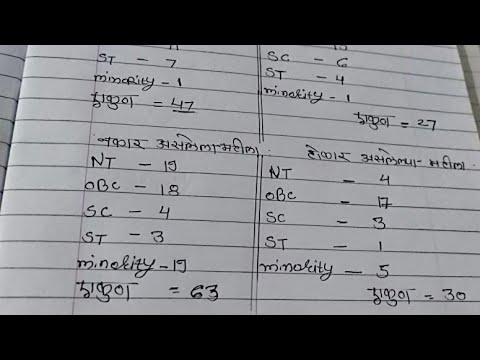 ST - 7
minority - 1
एकुण = 47
नकार असलेला महीला
NT - 19
OBC - 18
SC - 4
ST - 3
minority - 19
एकुण = 63
SC - 6
ST - 4
minority - 1
एकुण = 27
होकार असलेल्या - महीला
NT - 4
OBC - 17
SC - 3
ST - 1
minority - 5
एकुण = 30